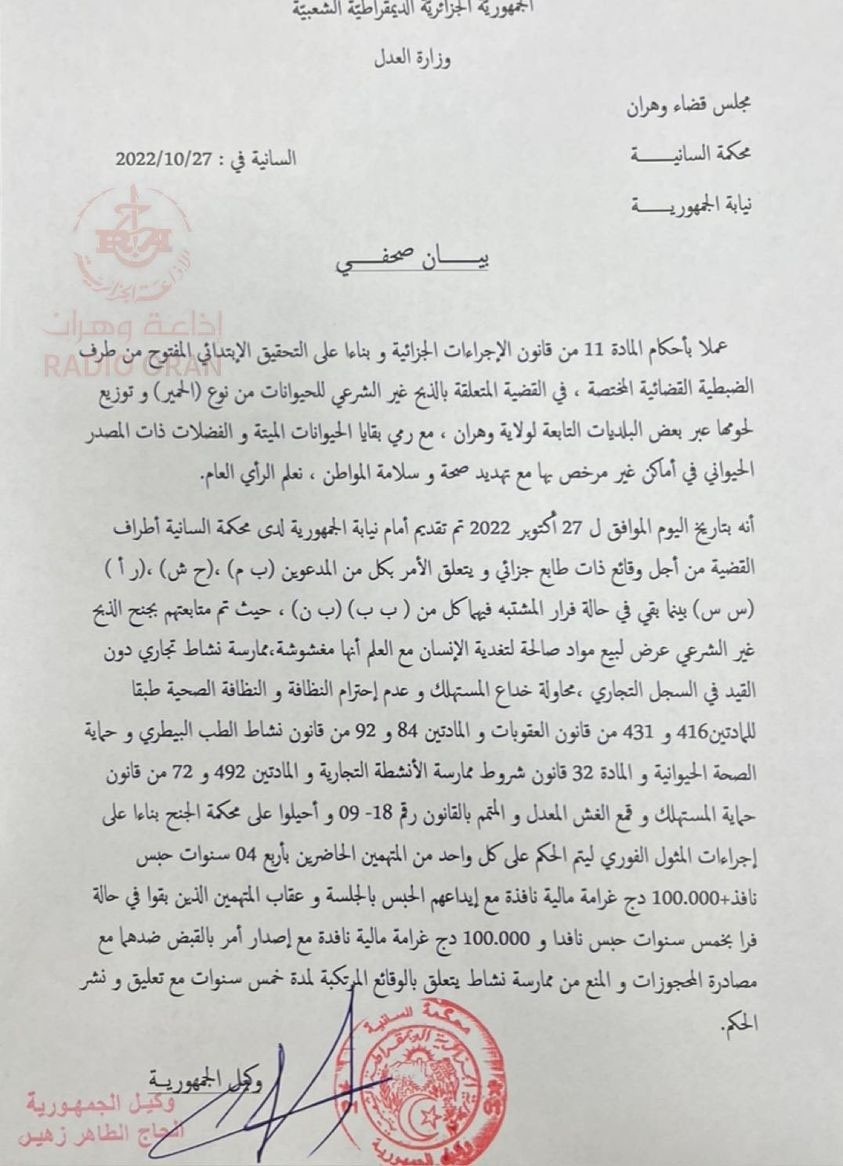 الجمهورية الجزائرية الديمقراطية الشعبية
وزارة العدل
مجلس قضاء وهران
محكمة السانيــــة
السانية في : 2022/10/27
نيابة الجمهوريــــة
بيــــان صحفــــي
إذاعة وهران
RADIO ORAN
عملا بأحكام المادة 11 من قانون الإجراءات الجزائية و بناءا على التحقيق الإبتدائي المفتوح من طرف
الضبطية القضائية المختصة ، في القضية المتعلقة بالذبح غير الشرعي للحيوانات من نوع (الحمير) و توزيع
لحومها عبر بعض البلديات التابعة لولاية وهران ، مع رمي بقايا الحيوانات الميتة و الفضلات ذات المصدر
الحيواني في أماكن غير مرخص بها مع تهديد صحة و سلامة المواطن ، نعلم الرأي العام.
أنه بتاريخ اليوم الموافق ل 27 أكتوبر 2022 تم تقديم أمام نيابة الجمهورية لدى محكمة السانية أطراف
القضية من أجل وقائع ذات طابع جزائي و يتعلق الأمر بكل من المدعوين (ب م) ،(ح ش) ،(ر أ )
(س س) بينما بقي في حالة فرار المشتبه فيهما كل من ( ب ب) (ب ن) ، حيث تم متابعتهم بجنح الذبح
غير الشرعي عرض لبيع مواد صالحة لتغدية الإنسان مع العلم أنها مغشوشة،ممارسة نشاط تجاري دون
القيد في السجل التجاري ،محاولة خداع المستهلك و عدم إحترام النظافة و النظافة الصحية طبقا
للمادتين416 و 431 من قانون العقوبات و المادتين 84 و 92 من قانون نشاط الطب البيطري و حماية
الصحة الحيوانية و المادة 32 قانون شروط ممارسة الأنشطة التجارية و المادتين 492 و 72 من قانون
حماية المستهلك و قمع الغش المعدل و المتمم بالقانون رقم 18- 09 و أحيلوا على محكمة الجنح بناءا على
إجراءات المثول الفوري ليتم الحكم على كل واحد من المتهمين الحاضرين بأربع 04 سنوات حبس
نافذ+100.000 دج غرامة مالية نافذة مع إيداعهم الحبس بالجلسة و عقاب المتهمين الذين بقوا في حالة
فرا بخمس سنوات حبس نافدا و 100.000 دج غرامة مالية نافدة مع إصدار أمر بالقبض ضدهما مع
مصادرة المحجوزات و المنع من ممارسة نشاط يتعلق بالوقائع المرتكبة لمدة خمس سنوات مع تعليق و نشر
الحكم.
محكمة السانية
وكيل الجمهوريــة
وكيل الجمهورية
الحاج الطاهر زهير
وكيل الجمهورية